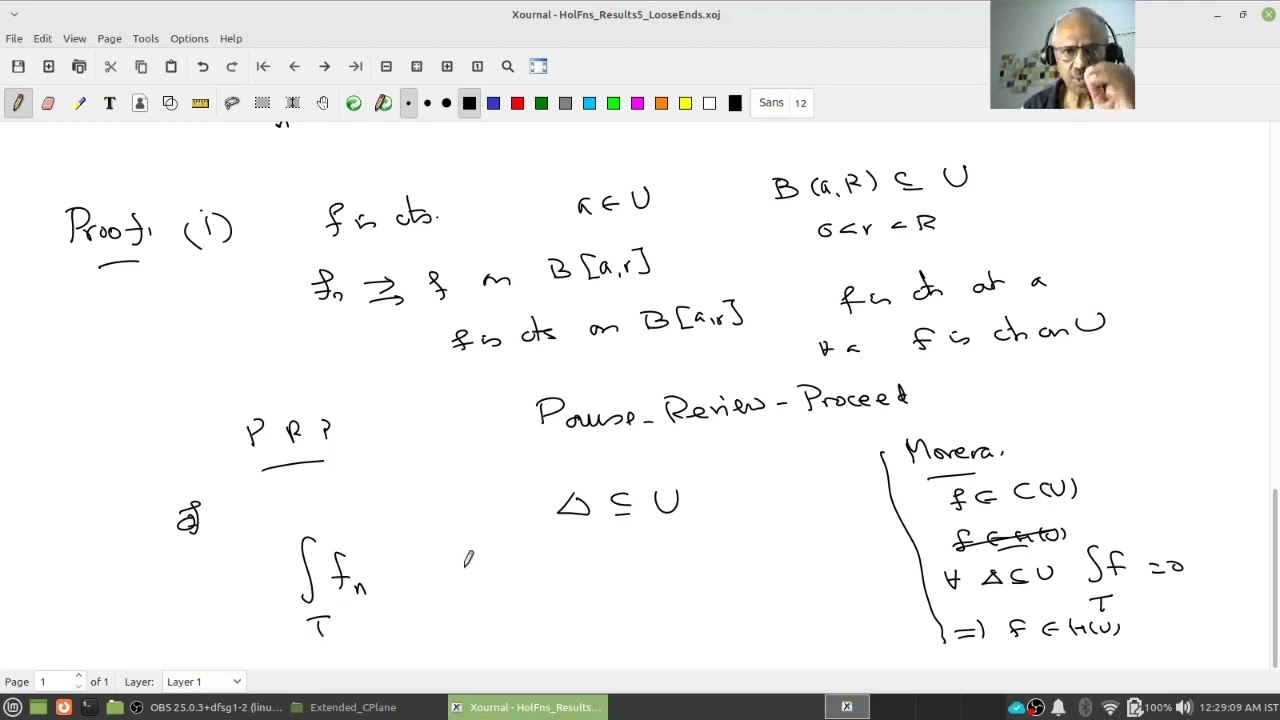 Xournal - HolFns_Results5_LooseEnds.xoj
File Edit View Page Tools Options Help
Sans 12
Proof. (i) f is cts. a ∈ U B(a, R) ⊆ U
0 < r < R
fₙ ⇉ f on B[a,r]
f is cts on B[a,r] f is cts at a
∀ a f is cts on U
Pause - Review - Proceed
P R P
Morera.
Δ ⊆ U f ∈ C(U)
f ∈ H(U)
∫ fₙ ∀ Δ ⊆ U ∫ f = 0
T T
⇒ f ∈ H(U)
Page 1 of 1 Layer: Layer 1
OBS 25.0.3+dfsg1-2 (linu... Extended_CPlane Xournal - HolFns_Results... 100% 12:29:09 AM IST